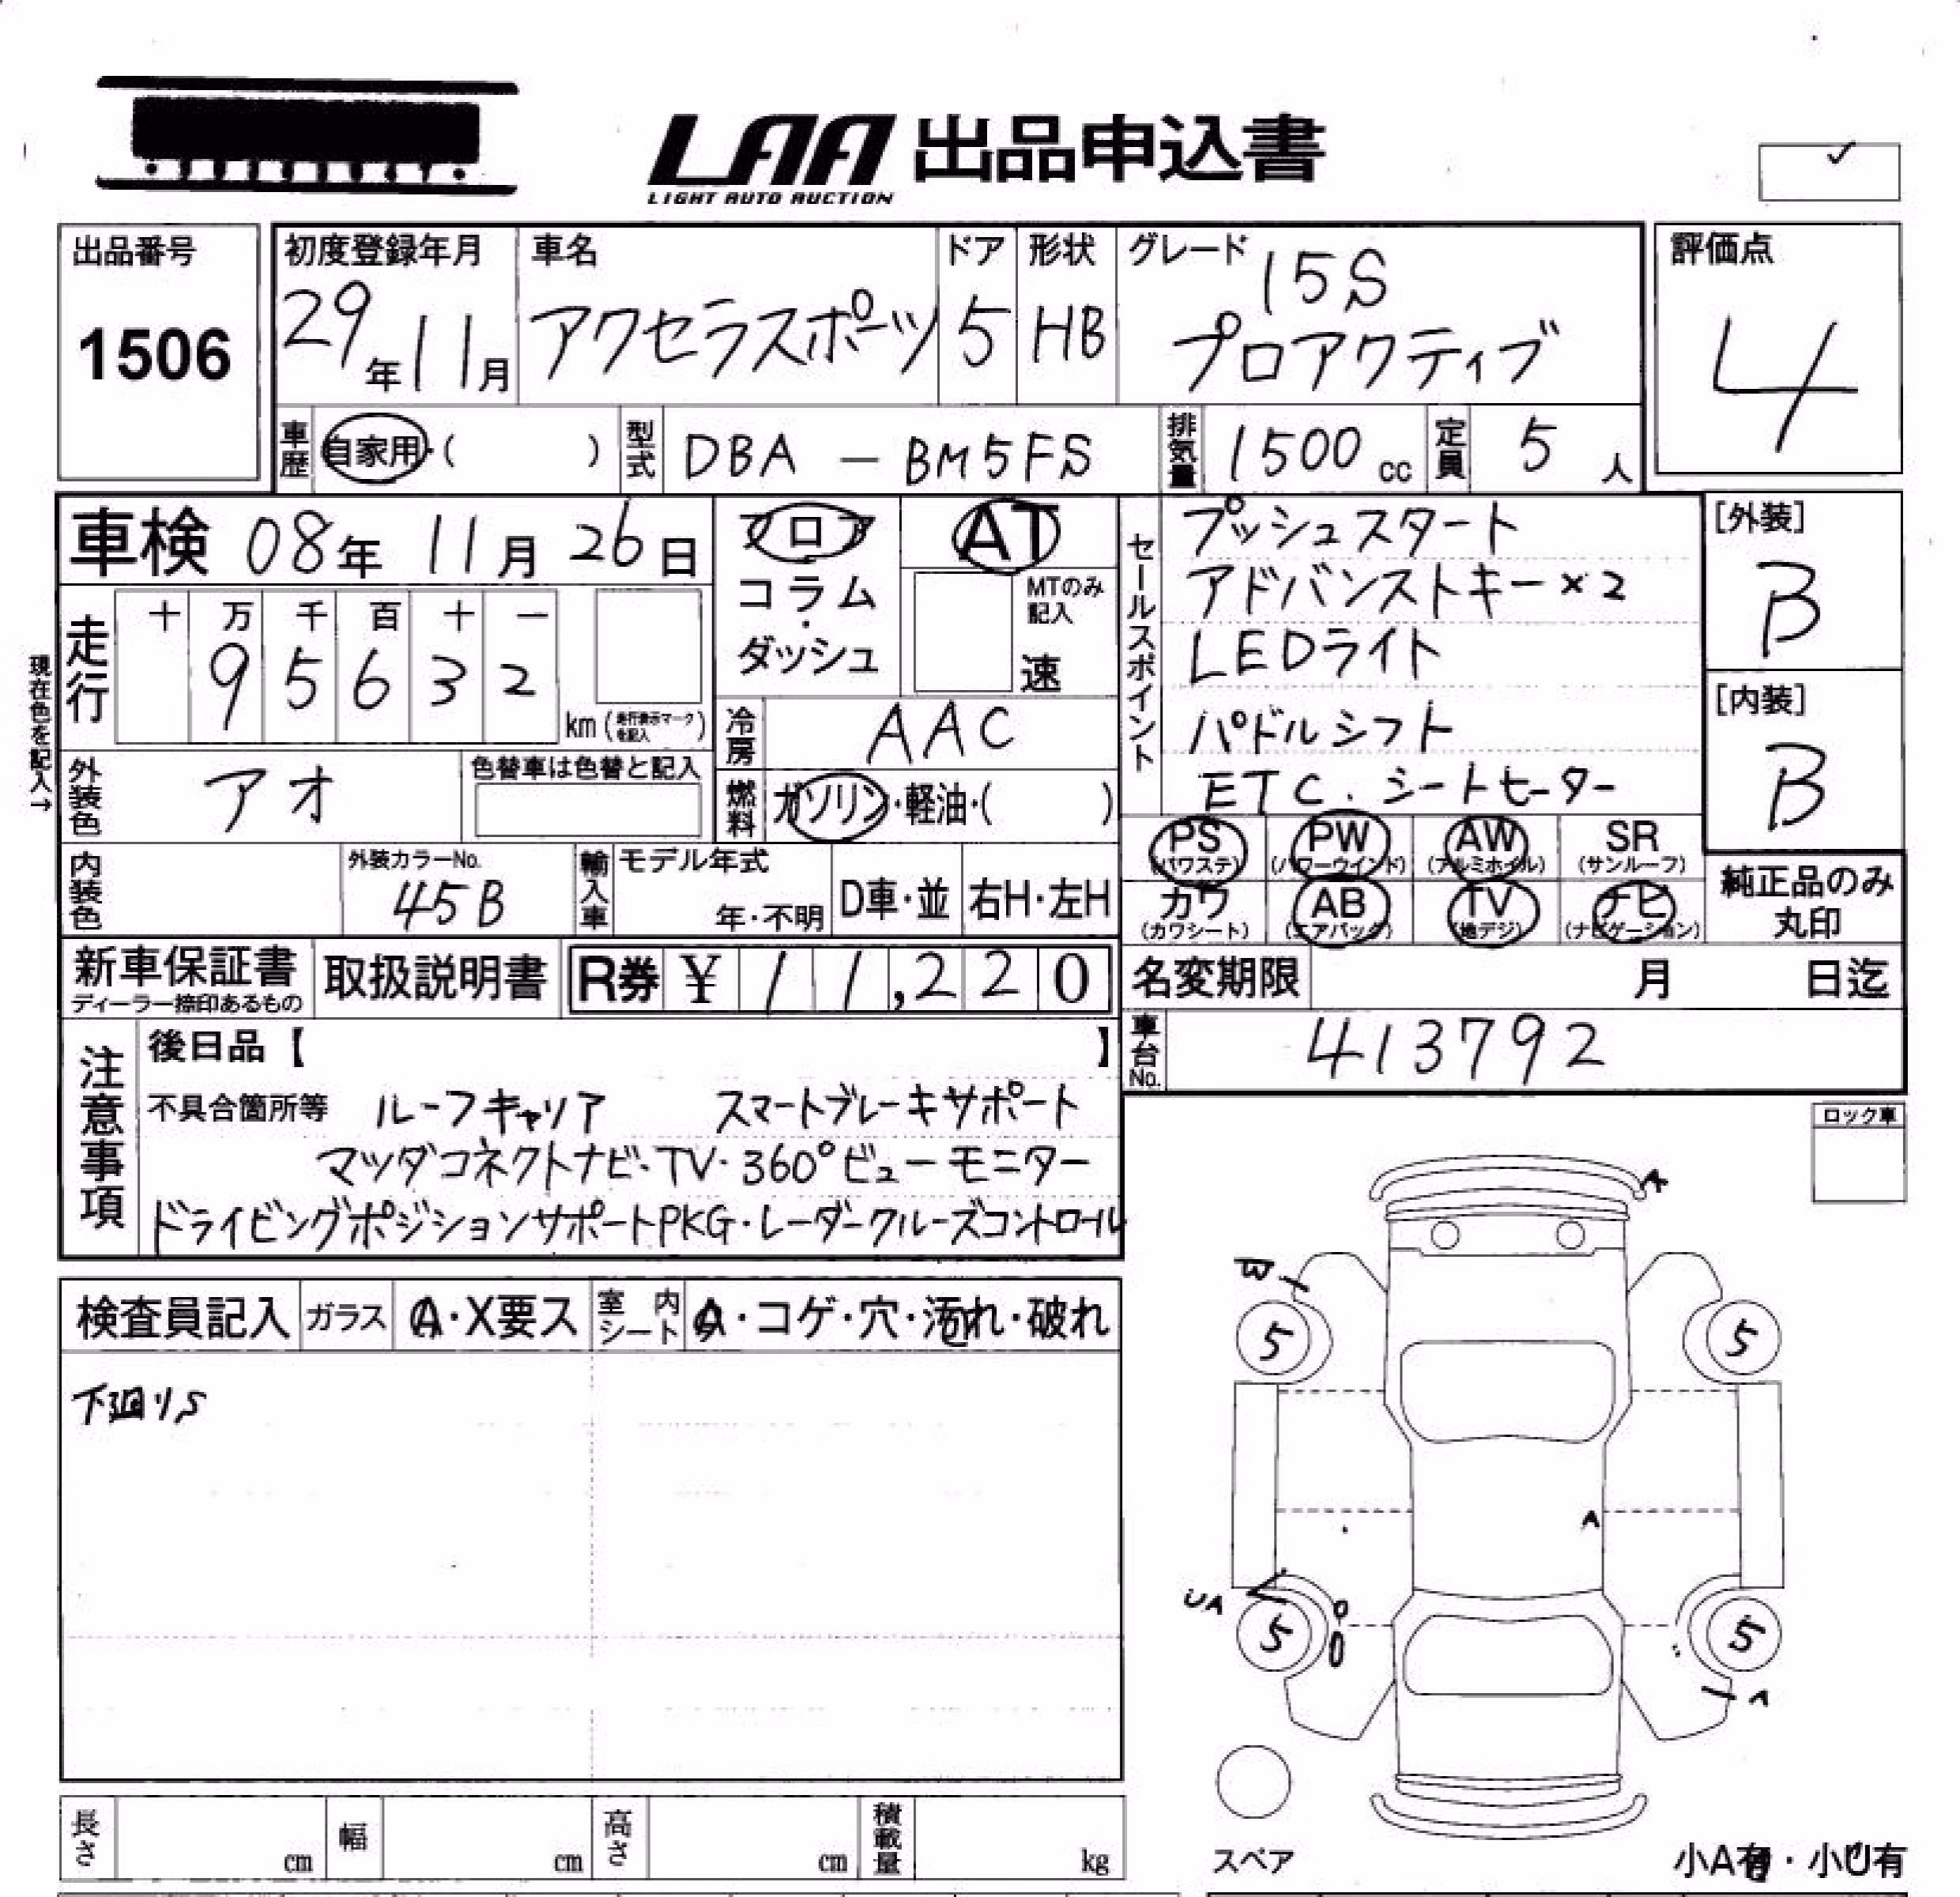 LAA 出品申込書
LIGHT AUTO AUCTION
出品番号
1506
初度登録年月
29年11月
車名
アクセラスポーツ
ドア
5
形状
HB
グレード
15S
プロアクティブ
評価点
4
車歴
自家用・( )
型式
DBA-BM5FS
排気量
1500 cc
定員
5 人
車検 08年 11月 26日
フロア
コラム
・
ダッシュ
AT
MTのみ
記入
速
現在色を記入→
走行
十 万 千 百 十 一
9 5 6 3 2
km(走行表示マークを記入)
冷房
AAC
外装色
アオ
色替車は色替と記入
燃料
ガソリン・軽油・( )
内装色
外装カラーNo.
45B
輸入車
モデル年式
年・不明
D車・並
右H・左H
新車保証書
ディーラー捺印あるもの
取扱説明書
R券 ¥ 11,220
セールスポイント
プッシュスタート
アドバンストキー×2
LEDライト
パドルシフト
ETC. シートヒーター
[外装]
B
[内装]
B
PS
(パワステ)
PW
(パワーウインド)
AW
(アルミホイル)
SR
(サンルーフ)
カワ
(カワシート)
AB
(エアバッグ)
TV
(地デジ)
ナビ
(ナビゲーション)
純正品のみ
丸印
名変期限 月 日迄
車台No.
413792
注意事項
後日品【 】
不具合箇所等 ルーフキャリア スマートブレーキサポート
マツダコネクトナビ・TV・360°ビューモニター
ドライビングポジションサポートPKG・レーダークルーズコントロール
ロック車
検査員記入
ガラス
A・X要ス
室内シート
A・コゲ・穴・汚れ・破れ
下廻りS
A
5
5
A
UA
5
5
A
スペア
小A有・小U有
長さ cm
幅 cm
高さ cm
積載量 kg